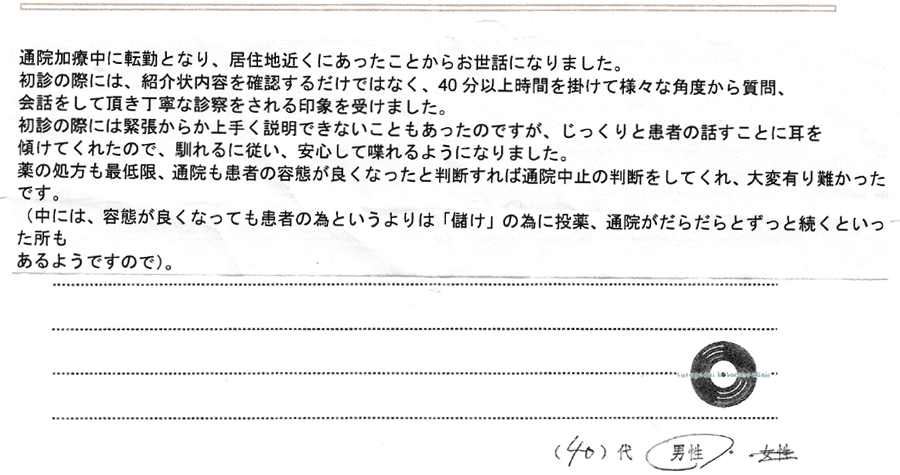 通院加療中に転勤となり、居住地近くにあったことからお世話になりました。
初診の際には、紹介状内容を確認するだけではなく、40分以上時間を掛けて様々な角度から質問、
会話をして頂き丁寧な診察をされる印象を受けました。
初診の際には緊張からか上手く説明できないこともあったのですが、じっくりと患者の話すことに耳を
傾けてくれたので、馴れるに従い、安心して喋れるようになりました。
薬の処方も最低限、通院も患者の容態が良くなったと判断すれば通院中止の判断をしてくれ、大変有り難かった
です。
（中には、容態が良くなっても患者の為というよりは「儲け」の為に投薬、通院がだらだらとずっと続くといっ
た所も
あるようですので）。
(40)代 男性・女性